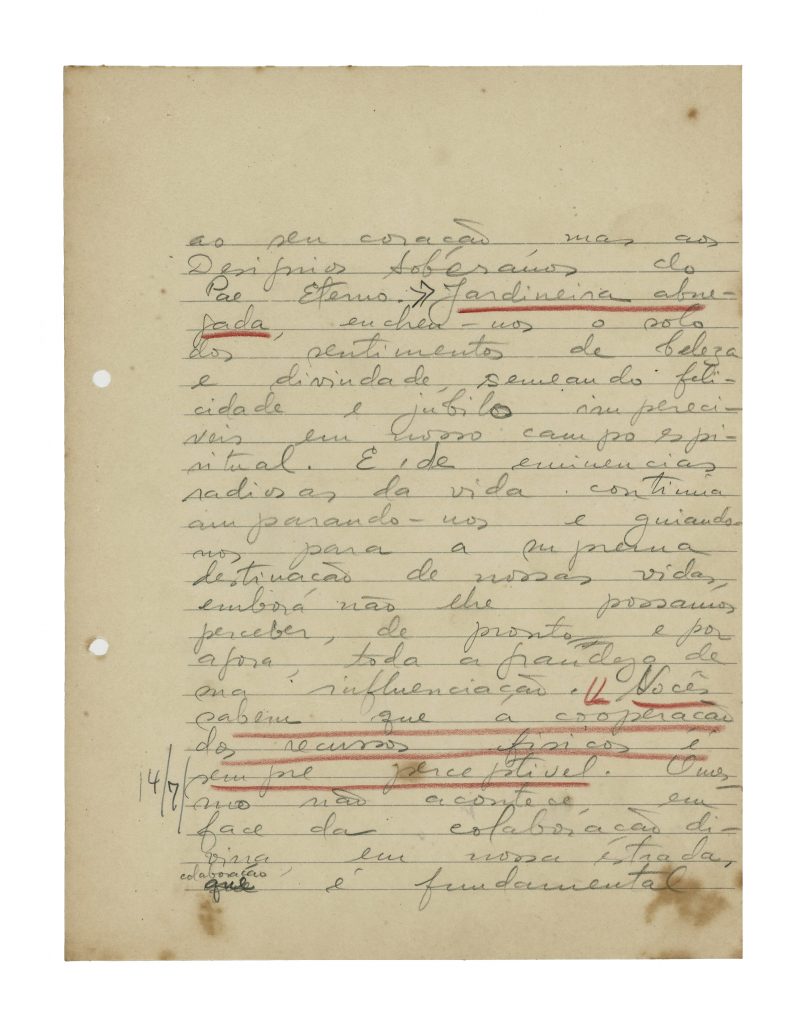 ao seu coração, mas aos
Designios Soberanos do
Pae Eterno. Jardineira abne-
gada, encheu-nos o solo
dos sentimentos de beleza
e divindade, semeando feli-
cidade e jubilo imperecí-
veis em nosso campo espi-
ritual. E, de eminencias
radiosas da vida continúa
amparando-nos e guiando-
nos para a suprema
destinação de nossas vidas,
embora não lhe possamos
perceber, de pronto e por
agora, toda a grandeza de
sua influenciação. Vocês
sabem que a cooperação
dos recursos fisicos é
sempre perceptivel. O mes-
14/7/
mo não acontece, em
face da colaboração di-
vina, em nossa estrada,
colaboração
que é fundamental